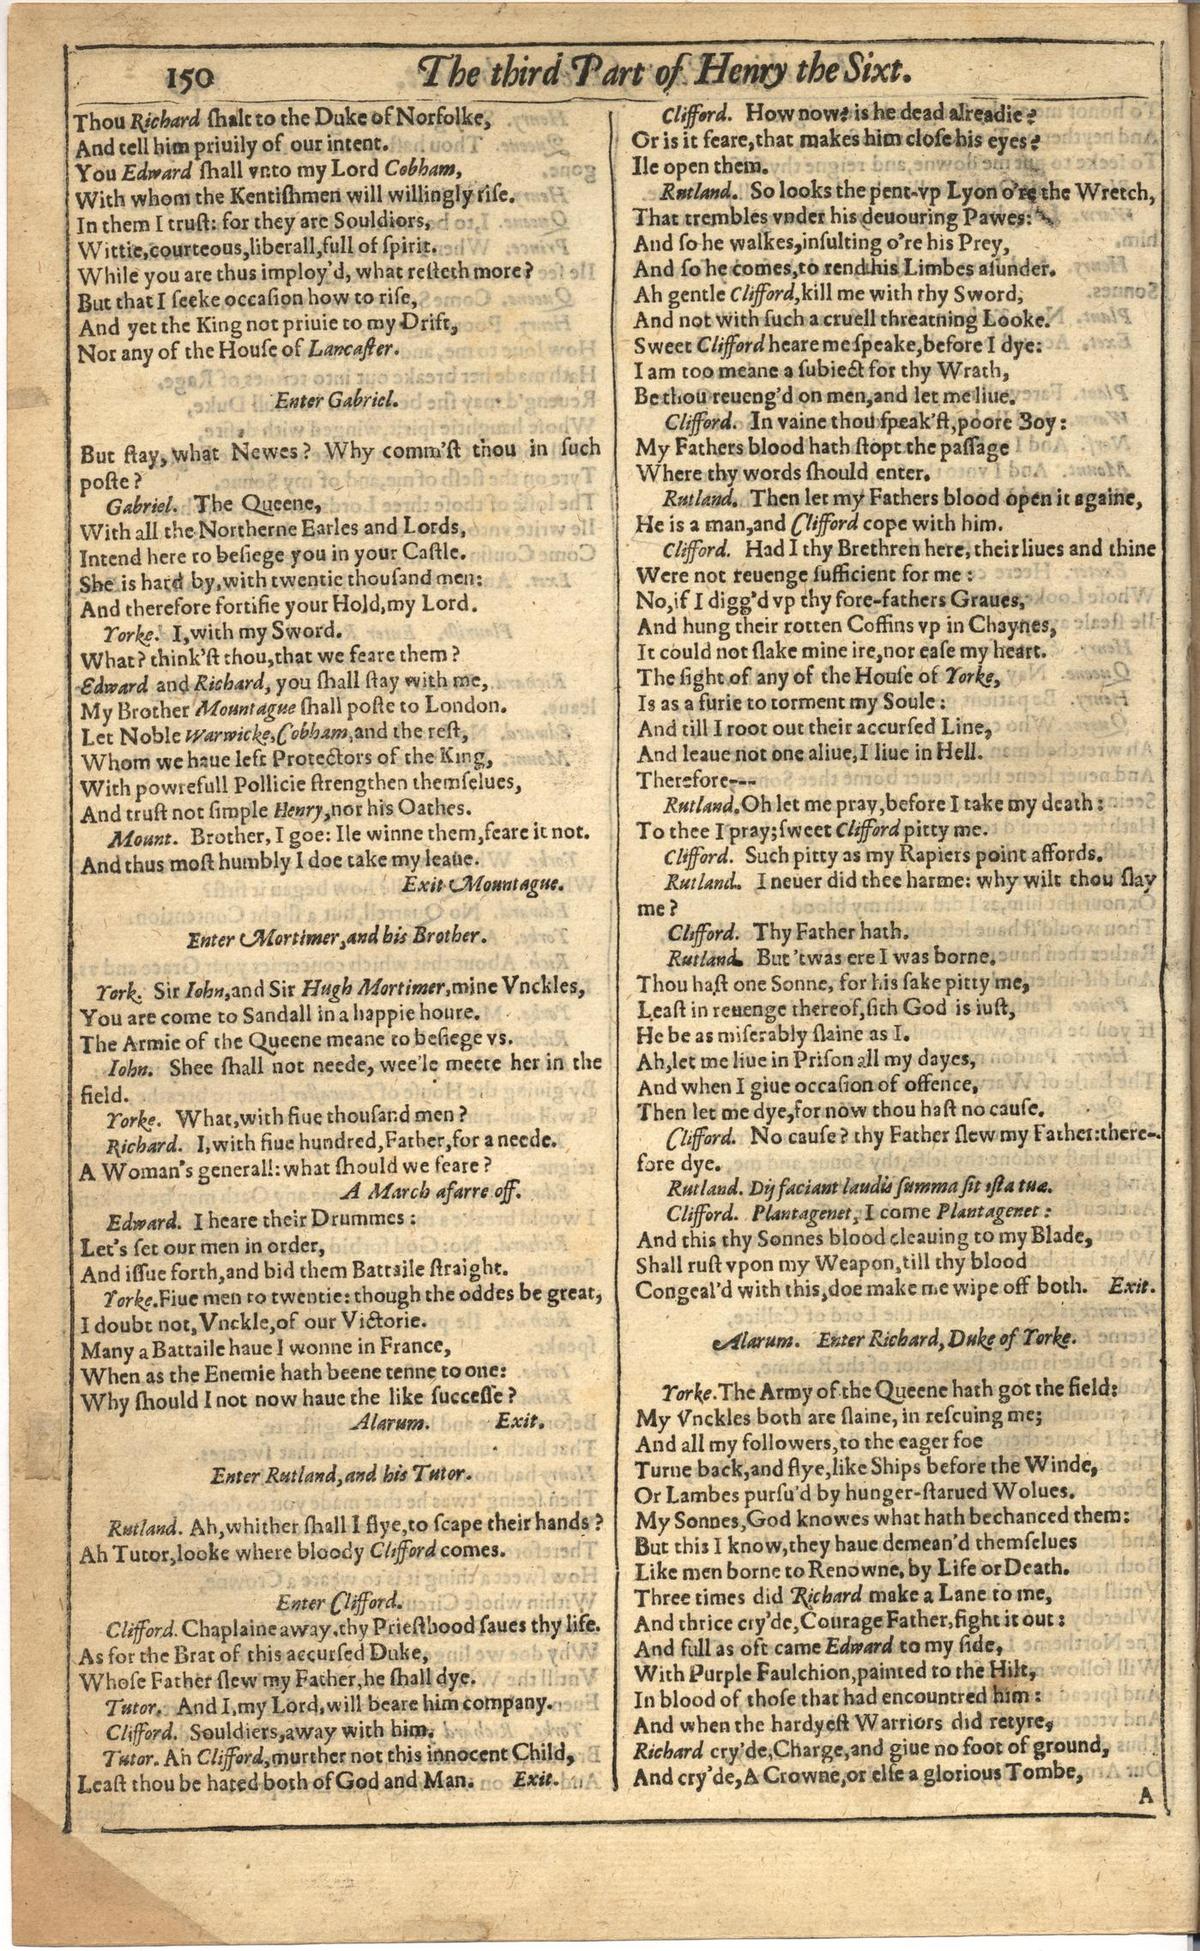 150
The third Part of Henry the Sixt.
Thou Richard shalt to the Duke of Norfolke,
And tell him priuily of our intent.
You Edward shall vnto my Lord Cobham,
With whom the Kentishmen will willingly rise.
In them I trust: for they are Souldiors,
Wittie,courteous,liberall,full of spirit.
While you are thus imploy'd, what resteth more?
But that I seeke occasion how to rise,
And yet the King not priuie to my Drift,
Nor any of the House of Lancaster.
Enter Gabriel.
But stay, what Newes? Why comm'st thou in such
poste?
Gabriel. The Queene,
With all the Northerne Earles and Lords,
Intend here to besiege you in your Castle.
She is hard by, with twentie thousand men:
And therefore fortifie your Hold,my Lord.
Yorke. I,with my Sword.
What? think'st thou,that we feare them?
Edward and Richard, you shall stay with me,
My Brother Mountague shall poste to London.
Let Noble Warwicke,Cobham,and the rest,
Whom we haue left Protectors of the King,
With powrefull Pollicie strengthen themselues,
And trust not simple Henry,nor his Oathes.
Mount. Brother, I goe: Ile winne them,feare it not.
And thus most humbly I doe take my leaue.
Exit Mountague.
Enter Mortimer,and his Brother.
York. Sir Iohn,and Sir Hugh Mortimer,mine Vnckles,
You are come to Sandall in a happie houre.
The Armie of the Queene meane to besiege vs.
Iohn. Shee shall not neede, wee'le meete her in the
field.
Yorke. What,with fiue thousand men?
Richard. I,with fiue hundred,Father,for a neede.
A Woman's generall: what should we feare?
A March afarre off.
Edward. I heare their Drummes:
Let's set our men in order,
And issue forth,and bid them Battaile straight.
Yorke.Fiue men to twentie: though the oddes be great,
I doubt not,Vnckle,of our Victorie.
Many a Battaile haue I wonne in France,
When as the Enemie hath beene tenne to one:
Why should I not now haue the like successe?
Alarum. Exit.
Enter Rutland,and his Tutor.
Rutland. Ah,whither shall I flye,to scape their hands?
Ah Tutor,looke where bloody Clifford comes.
Enter Clifford.
Clifford. Chaplaine away,thy Priesthood saues thy life.
As for the Brat of this accursed Duke,
Whose Father slew my Father,he shall dye.
Tutor. And I,my Lord,will beare him company.
Clifford. Souldiers,away with him.
Tutor. Ah Clifford,murther not this innocent Child,
Least thou be hated both of God and Man. Exit.
Clifford. How now? is he dead alreadie?
Or is it feare,that makes him close his eyes?
Ile open them.
Rutland. So looks the pent-vp Lyon o're the Wretch,
That trembles vnder his deuouring Pawes:
And so he walkes,insulting o're his Prey,
And so he comes,to rend his Limbes asunder.
Ah gentle Clifford,kill me with thy Sword,
And not with such a cruell threatning Looke.
Sweet Clifford heare me speake,before I dye:
I am too meane a subiect for thy Wrath,
Be thou reueng'd on men,and let me liue.
Clifford. In vaine thou speak'st,poore Boy:
My Fathers blood hath stopt the passage
Where thy words should enter.
Rutland. Then let my Fathers blood open it againe,
He is a man,and Clifford cope with him.
Clifford. Had I thy Brethren here, their liues and thine
Were not reuenge sufficient for me:
No,if I digg'd vp thy fore-fathers Graues,
And hung their rotten Coffins vp in Chaynes,
It could not slake mine ire,nor ease my heart.
The sight of any of the House of Yorke,
Is as a furie to torment my Soule:
And till I root out their accursed Line,
And leaue not one aliue,I liue in Hell.
Therefore---
Rutland.Oh let me pray,before I take my death:
To thee I pray;sweet Clifford pitty me.
Clifford. Such pitty as my Rapiers point affords.
Rutland. I neuer did thee harme: why wilt thou slay
me?
Clifford. Thy Father hath.
Rutland. But 'twas ere I was borne.
Thou hast one Sonne, for his sake pitty me,
Least in reuenge thereof,sith God is iust,
He be as miserably slaine as I.
Ah,let me liue in Prison all my dayes,
And when I giue occasion of offence,
Then let me dye,for now thou hast no cause.
Clifford. No cause? thy Father slew my Father:there-
fore dye.
Rutland. Dij faciant laudis summa sit ista tuæ.
Clifford. Plantagenet, I come Plantagenet:
And this thy Sonnes blood cleauing to my Blade,
Shall rust vpon my Weapon,till thy blood
Congeal'd with this,doe make me wipe off both. Exit.
Alarum. Enter Richard, Duke of Yorke.
Yorke.The Army of the Queene hath got the field:
My Vnckles both are slaine, in rescuing me;
And all my followers,to the eager foe
Turne back,and flye,like Ships before the Winde,
Or Lambes pursu'd by hunger-starued Wolues.
My Sonnes,God knowes what hath bechanced them:
But this I know,they haue demean'd themselues
Like men borne to Renowne, by Life or Death.
Three times did Richard make a Lane to me,
And thrice cry'de,Courage Father,fight it out:
And full as oft came Edward to my side,
With Purple Faulchion,painted to the Hilt,
In blood of those that had encountred him:
And when the hardyest Warriors did retyre,
Richard cry'de,Charge,and giue no foot of ground,
And cry'de,A Crowne,or else a glorious Tombe,
A